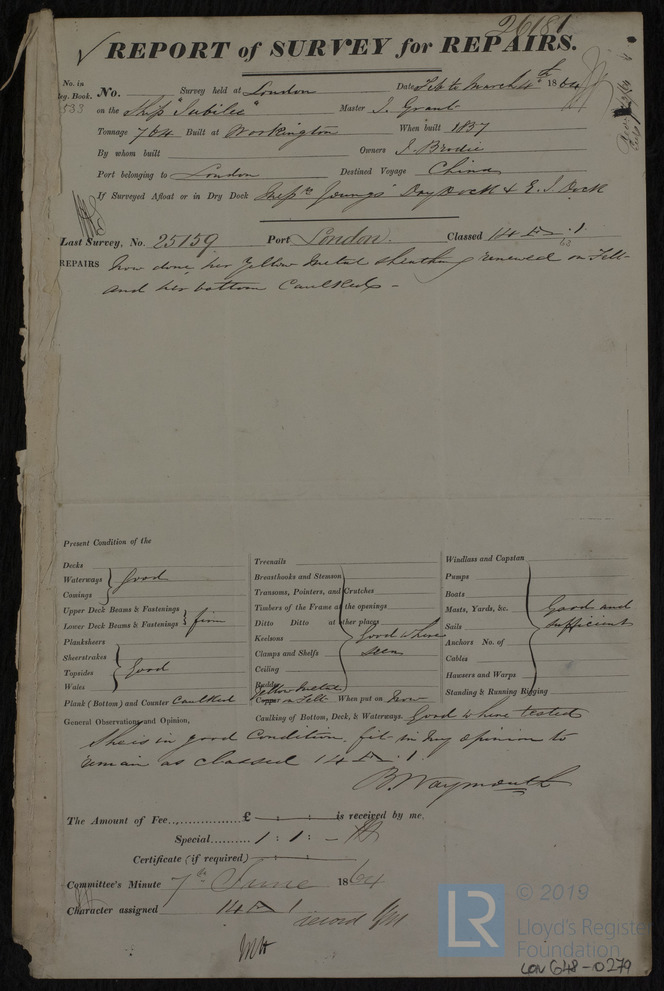 26181
REPORT of SURVEY for REPAIRS.
No. in Reg. Book. 533
No. Survey held at London Date Feb to March 4th 1864
on the Ship "Jubilee" Master J. Grant
Tonnage 764 Built at Workington When built 1857
By whom built Owners J. Brodie
Port belonging to London Destined Voyage China
If Surveyed Afloat or in Dry Dock Messrs Youngs' Dry Dock & E. I. Dock
Last Survey, No. 25159 Port London. Classed 14 A 1 63
REPAIRS Now done, her Yellow Metal sheathing renewed on Felt
and her bottom Caulked -
Present Condition of the
Decks
Waterways
Comings
Good
Upper Deck Beams & Fastenings
Lower Deck Beams & Fastenings
firm
Planksheers
Sheerstrakes
Topsides
Wales
Good
Plank (Bottom) and Counter Caulked
Treenails
Breasthooks and Stemson
Transoms, Pointers, and Crutches
Timbers of the Frame at the openings
Ditto Ditto at other places
Keelsons
Clamps and Shelfs
Ceiling
Rudder
Good where seen
Yellow Metal
Copper on Felt When put on Now
Windlass and Capstan
Pumps
Boats
Masts, Yards, &c.
Sails
Anchors No. of
Cables
Hawsers and Warps
Standing & Running Rigging
Good and sufficient
General Observations and Opinion, Caulking of Bottom, Deck, & Waterways. Good where tested
She is in good Condition, fit in my opinion to
remain as classed 14 A 1
B. Waymouth
The Amount of Fee £ : : is received by me,
Special 1 : 1 : -
Certificate (if required) : :
Committee's Minute 7th June 1864
Character assigned 14 A 1
record
© 2019
LR Lloyd's Register
Foundation
LON 648-0279